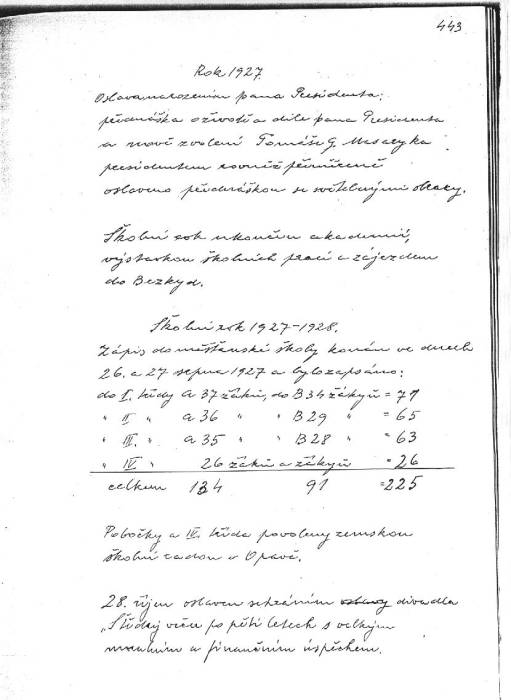 443
Rok 1927
Oslava narozenin pana Presidenta:
přednáška o životě a díle pana Presidenta
a nové zvolení Tomáše G. Masaryka
presidentem rovněž přiměřeně
oslaveno přednáškou se světelnými obrazy.
Školní rok ukončen akademií,
výstavkou školních prací a zájezdem
do Bezkyd.
Školní rok 1927-1928.
Zápis do měšťanské školy konán ve dnech
26. a 27 srpna 1927 a bylo zapsáno:
do I. třídy A 37 žáků, do B 34 žákyň = 71
" II " A 36 " " B 29 " = 65
" III. " A 35 " " B 28 " = 63
" IV " 26 žáků a žákyň = 26
celkem 134 91 = 225
Pobočky a IV. třída povoleny zemskou
školní radou v Opavě.
28. říjen oslaven sehráním oslavy divadla
"Štědrý večer po pěti letech s velkým
morálním a finančním úspěchem.